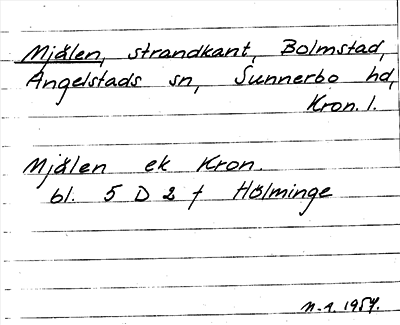 Mjälen, strandkant, Bolmstad,
Angelstads sn, Sunnerbo hd,
Kron. l.
Mjälen ek Kron.
bl. 5 D 2 f Hölminge
n.1. 1957.